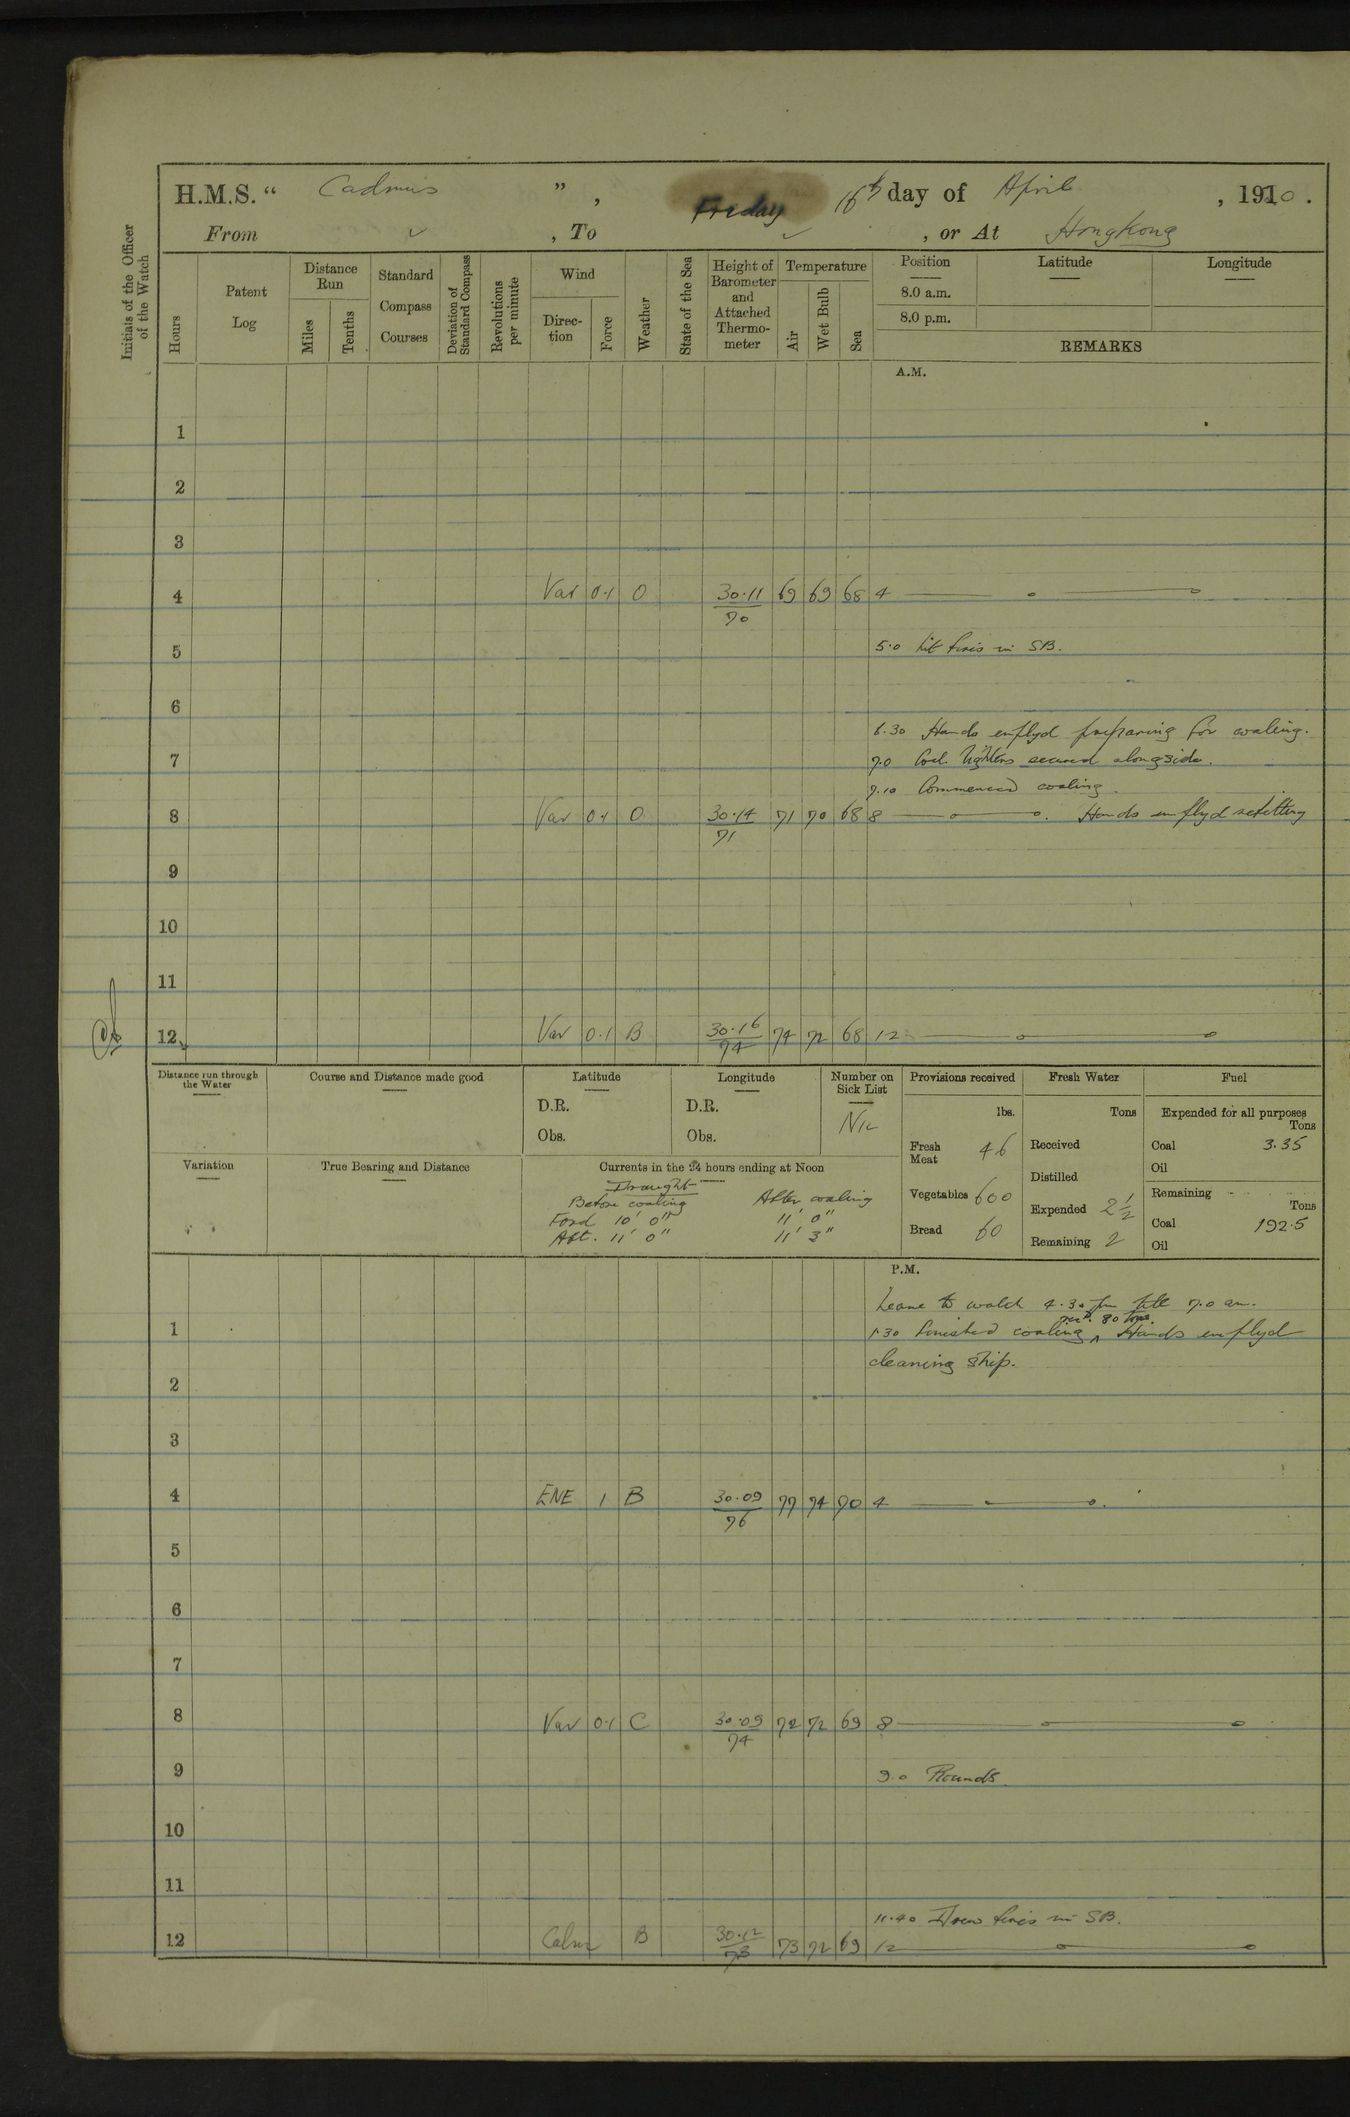 H.M.S. “ Cadmus ”, Friday day of April, 1910.
From ✓, To ✓, or At Hongkong
Initials of the Officer of the Watch
Hours
Patent Log
Distance Run
Miles
Tenths
Standard Compass Courses
Deviation of Standard Compass
Revolutions per minute
Wind
Direc-tion
Force
Weather
State of the Sea
Height of Barometer and Attached Thermo-meter
Temperature
Air
Wet Bulb
Sea
Position
8.0 a.m.
8.0 p.m.
Latitude
Longitude
REMARKS
A.M.
1
2
3
4 Var 0.1 O 30.11/70 69 69 68 4
5 5.0 Lit fires in SB.
6
6.30 Hands emplyd preparing for coaling.
7 7.0 Coal lighters secured alongside.
7.10 Commenced coaling.
8 Var 0.1 O 30.14/71 71 70 68 8 . Hands emplyd refitting
9
10
11
12 Var 0.1 B 30.16/74 74 72 68 12
Distance run through the Water
Course and Distance made good
Latitude
D.R.
Obs.
Longitude
D.R.
Obs.
Number on Sick List
Nil
Provisions received
lbs.
Fresh Meat 46
Vegetables 600
Bread 60
Fresh Water
Tons
Received
Distilled
Expended 2½
Remaining 2
Fuel
Expended for all purposes
Tons
Coal 3.35
Oil
Remaining
Tons
Coal 192.5
Oil
Variation
True Bearing and Distance
Currents in the 24 hours ending at Noon
Draught
Before coaling After coaling
Ford 10' 0" 11' 0"
Aft. 11' 0" 11' 3"
P.M.
Leave to watch 4.30 pm till 7.0 am.
1 1.30 Finished coaling recd. 80 tons. Hands emplyd
cleaning ship.
2
3
4 ENE 1 B 30.09/76 77 74 70 4
5
6
7
8 Var 0.1 C 30.09/74 72 72 69 8
9 9.0 Rounds.
10
11
11.40 Drew fires in SB.
12 Calm B 30.12/73 73 72 69 12